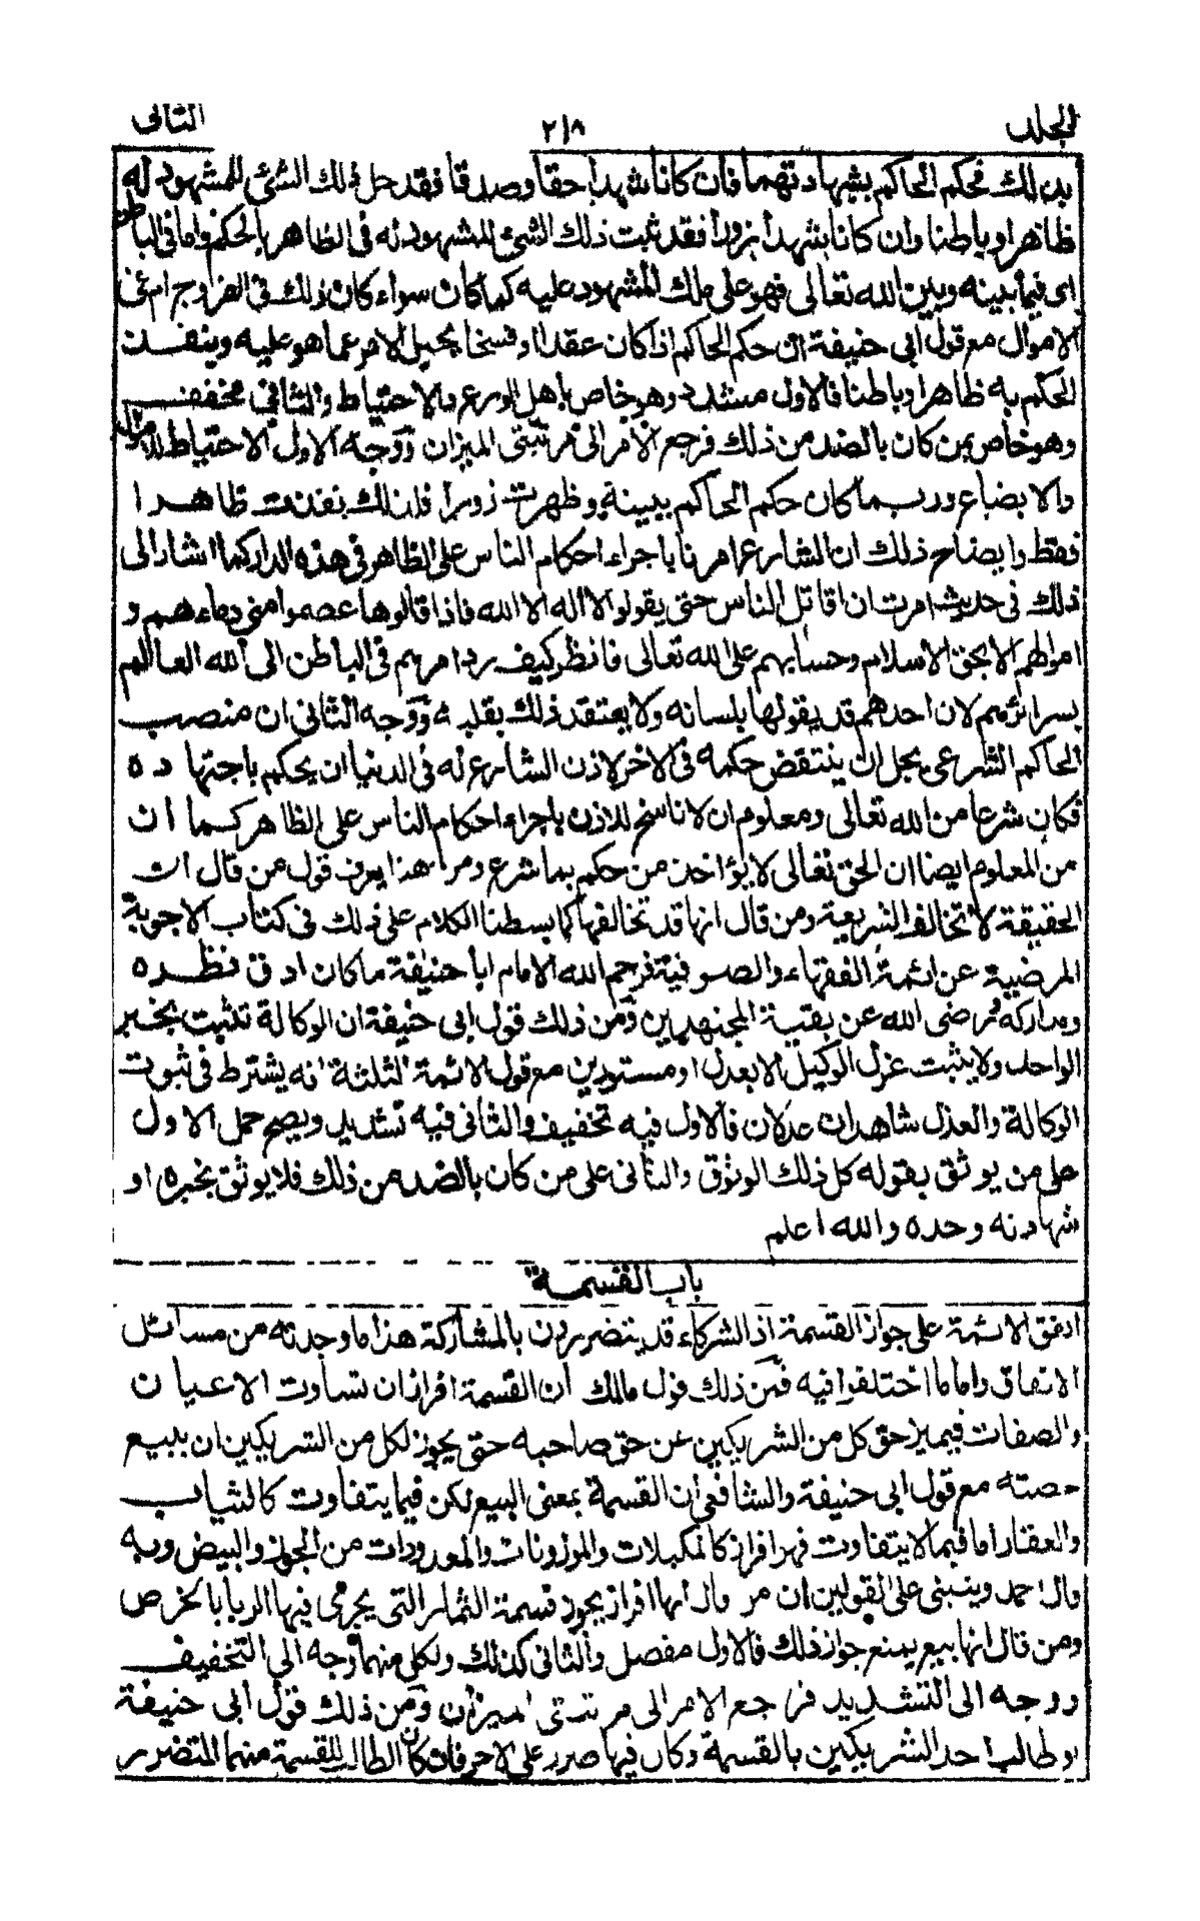 المجلد ٢١٨ الثانى
بذلك فحكم الحاكم بشهادتهما فان كانا شهدا حقا وصدقا فقد حل ذلك الشئ للمشهود له
ظاهرا وباطنا وان كانا شهدا بزور افقد ثبت ذلك الشئ للمشهود له فى الظاهر بالحكم واما فى الباطن
اى فيما بينه وبين الله تعالى فهو على ملك المشهود عليه كما كان سواء كان ذلك فى الفروج ام فى
الاموال مع قول ابى حنيفة ان حكم الحاكم اذا كان عقدا او فسخا يحيل الامر عما هو عليه وينفذ
الحكم به ظاهرا وباطنا فالاول مشدد وهو خاص باهل الورع والاحتياط والثانى مخفف
وهو خاص بمن كان بالضد من ذلك فرجع الامر الى مرتبتى الميزان ووجه الاول الاحتياط للاموال
والابضاع وربما كان حكم الحاكم ببينة وظهرت زورا فلذلك نفذت ظاهرا
فقط وايضاح ذلك ان الشارع امرنا باجراء احكام الناس على الظاهر فى هذه الدار كما اشار الى
ذلك فى حديث امرت ان اقاتل الناس حتى يقولوا لا اله الا الله فاذا قالوها عصموا منى دماءهم و
اموالهم الا بحق الاسلام وحسابهم على الله تعالى فانظر كيف رد امرهم فى الباطن الى الله العالم
بسرائرهم لان احدهم قد يقولها بلسانه ولا يعتقد ذلك بقلبه ووجه الثانى ان منصب
الحاكم الشرعى يجل ان ينتقض حكمه فى الاخر لاذن الشارع له فى الدنيا ان يحكم باجتهاده
فكان شرعا من الله تعالى ومعلوم ان لا ناسخ للاذن باجراء احكام الناس على الظاهر كما ان
من المعلوم ايضا ان الحق تعالى لا يؤاخذ من حكم بما شرع ومن هذا يعرف قول من قال ان
الحقيقة لا تخالف الشريعة ومن قال انها قد تخالفها كما بسطنا الكلام على ذلك فى كتاب الاجوبة
المرضية عن ائمة الفقهاء والصوفية فرحم الله الامام ابا حنيفة ما كان ادق نظره
ومداركه ورضى الله عن بقية المجتهدين ومن ذلك قول ابى حنيفة ان الوكالة تثبت بخبر
الواحد ولا يثبت عزل الوكيل الا بعدل او مستورين مع قول الائمة الثلثة انه يشترط فى ثبوت
الوكالة والعزل شاهدان عدلان فالاول فيه تخفيف والثانى فيه تشديد ويصح حمل الاول
على من يوثق بقوله كل ذلك الوثوق والثانى على من كان بالضد من ذلك فلا يوثق بخبره او
شهادته وحده والله اعلم
باب القسمة
اتفق الائمة على جواز القسمة اذ الشركاء قد يتضررون بالمشاركة هذا ما وجدته من مسائل
الاتفاق واما ما اختلفوا فيه فمن ذلك قول مالك ان القسمة افراز ان تساوت الاعيان
والصفات فيميز حق كل من الشريكين عن حق صاحبه حتى يجوز لكل من الشريكين ان يبيع
حصته مع قول ابى حنيفة والشافعى ان القسمة بمعنى البيع لكن فيما يتفاوت كالثياب
والعقار اما فيما لا يتفاوت فهو افراز كالمكيلات والموزونات والمعدودات من الجوز والبيض وبه
قال احمد وينبنى على القولين ان من قال انها افراز يجوز قسمة الثمار التى يجرى فيها الربا بالخرص
ومن قال انها بيع يمنع جواز ذلك فالاول مفصل والثانى كذلك ولكل منهما وجه الى التخفيف
ووجه الى التشديد فرجع الامر الى مرتبتى الميزان ومن ذلك قول ابى حنيفة
لو طالب احد الشريكين بالقسمة وكان فيها ضرر على الاخر فان كان الطالب للقسمة منهما المتضرر